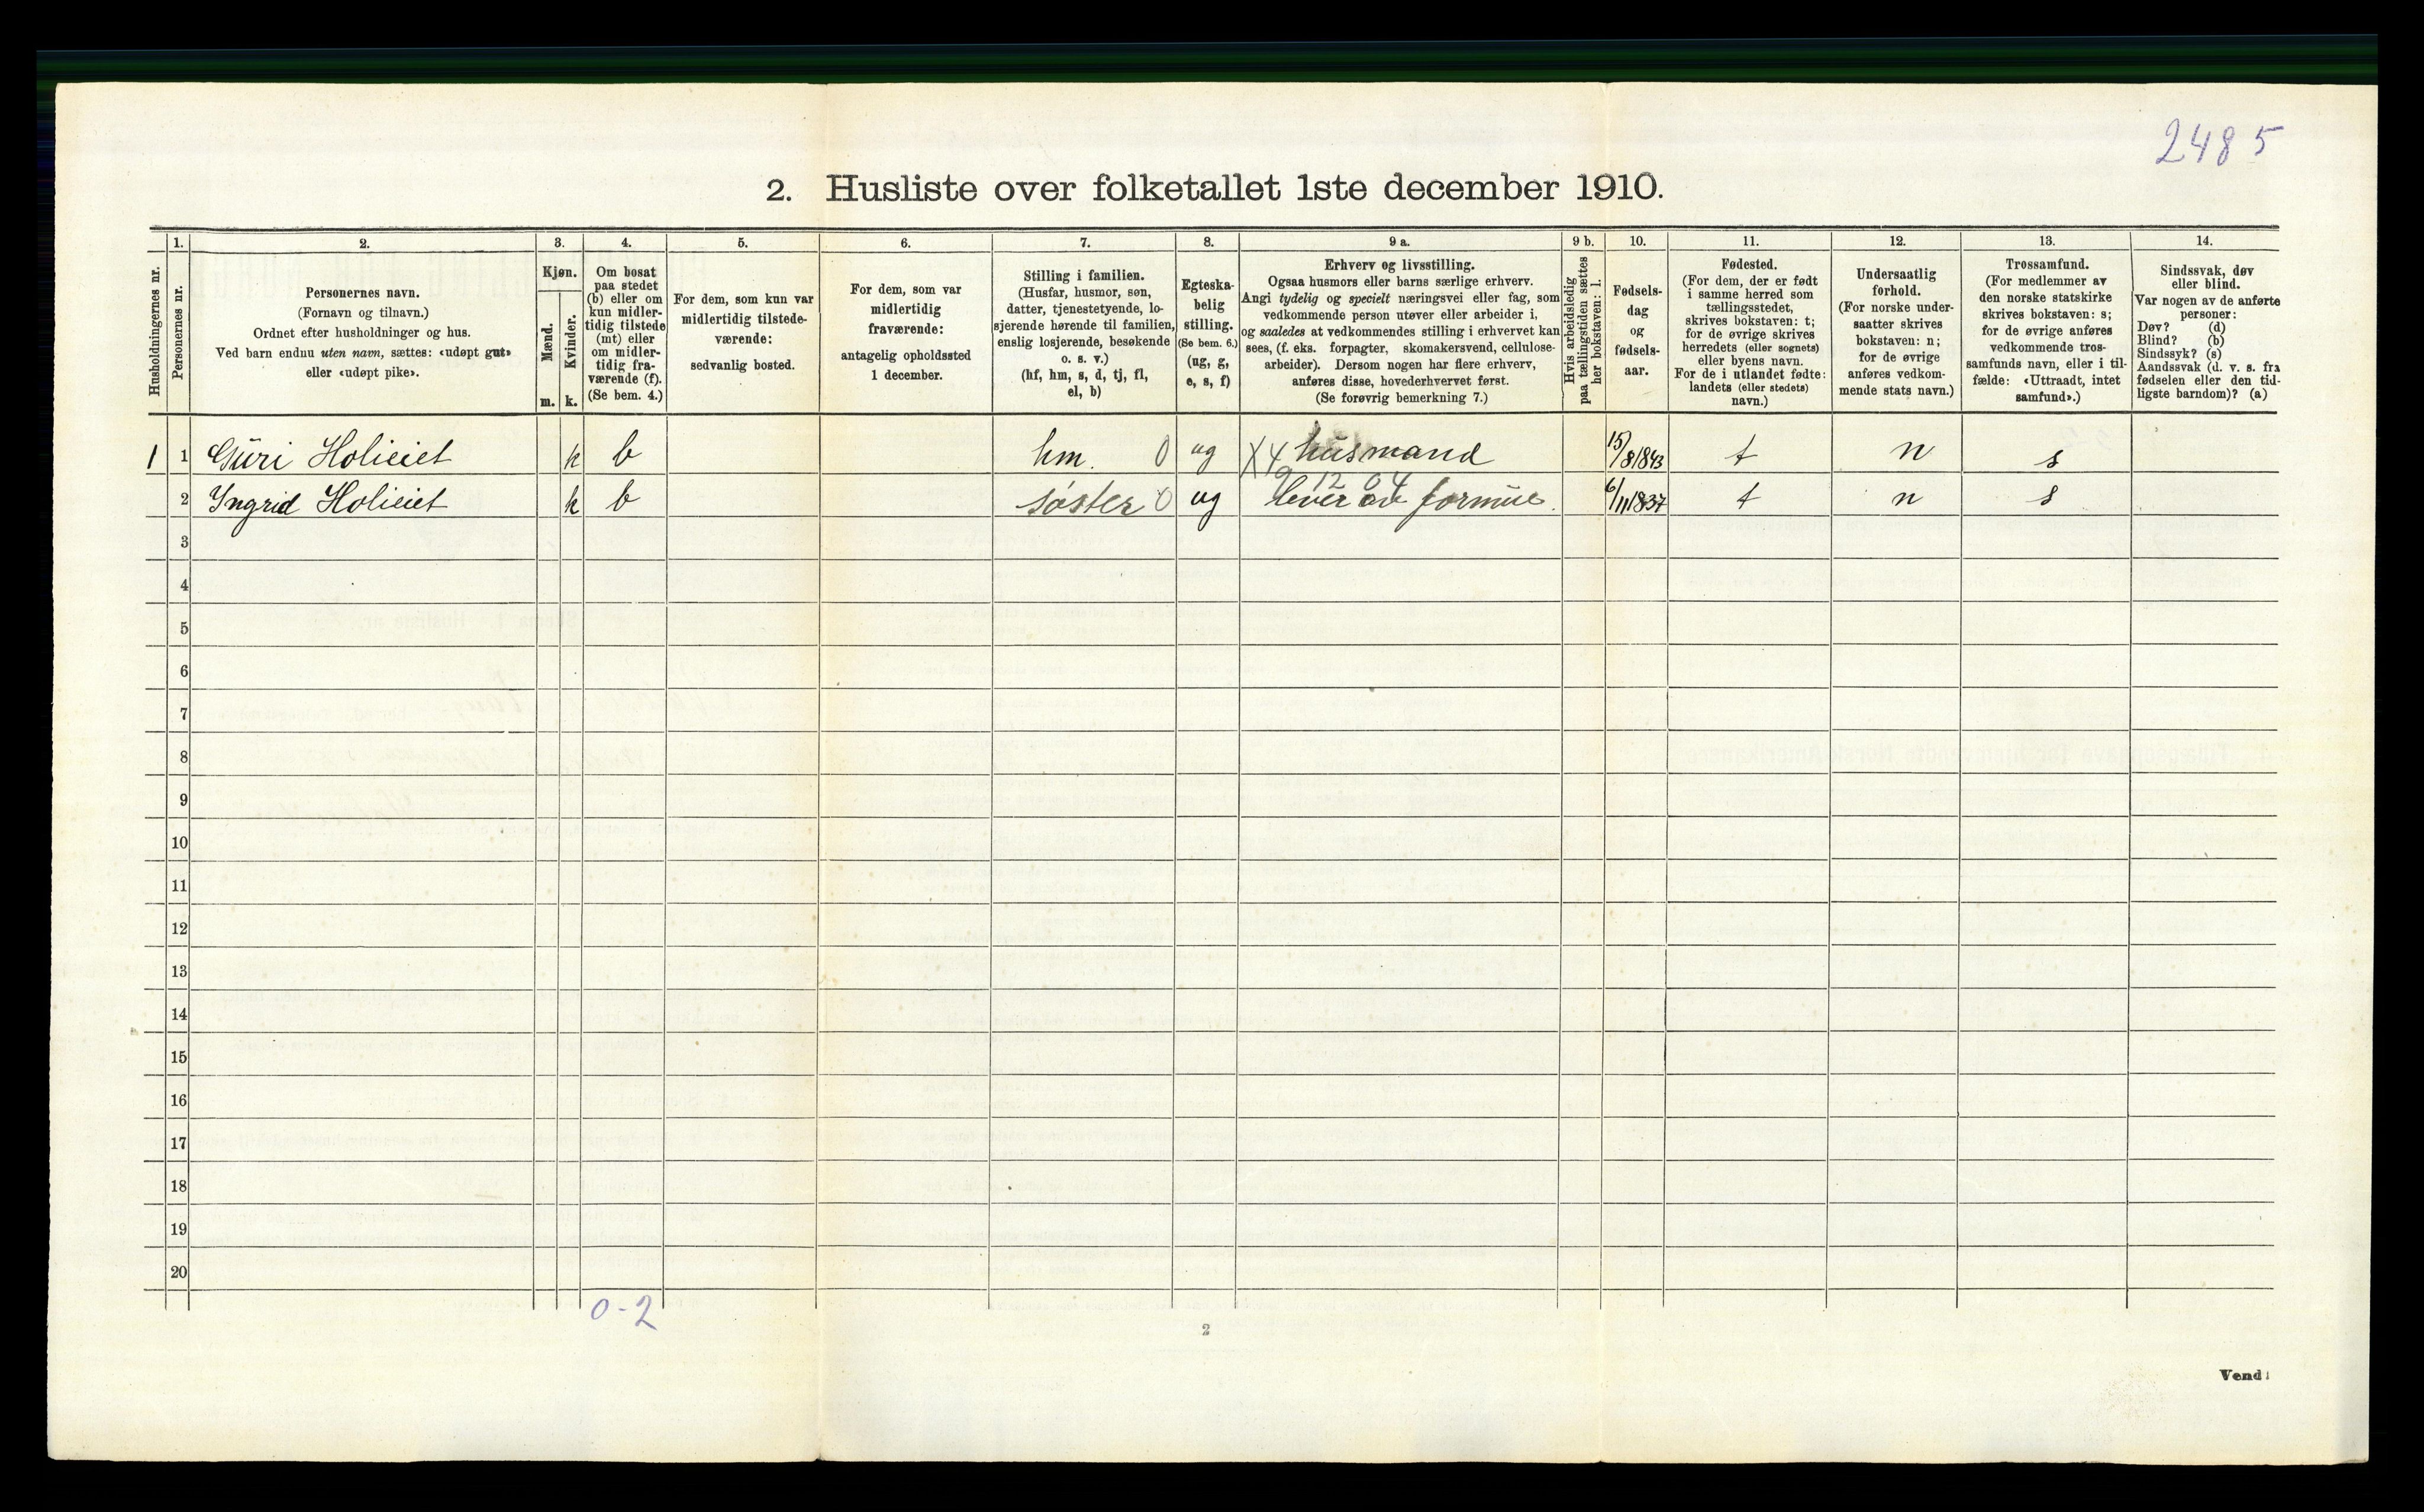 2485
2. Husliste over folketallet 1ste december 1910.
1. 2. 3. 4. 5. 6. 7. 8. 9 a. 9 b. 10. 11. 12. 13. 14.
Husholdningernes nr.
Personernes nr.
Personernes navn.
(Fornavn og tilnavn.)
Ordnet efter husholdninger og hus.
Ved barn endnu uten navn, sættes: «udøpt gut»
eller «udøpt pike».
Kjøn.
Mænd.
Kvinder.
m. k.
Om bosat
paa stedet
(b) eller om
kun midler-
tidig tilstede
(mt) eller
om midler-
tidig fra-
værende (f).
(Se bem. 4.)
For dem, som kun var
midlertidig tilstede-
værende:
sedvanlig bosted.
For dem, som var
midlertidig
fraværende:
antagelig opholdssted
1 december.
Stilling i familien.
(Husfar, husmor, søn,
datter, tjenestetyende, lo-
sjerende hørende til familien,
enslig losjerende, besøkende
o. s. v.)
(hf, hm, s, d, tj, fl,
el, b)
Egteska-
belig
stilling.
(Se bem. 6.)
(ug, g,
e, s, f)
Erhverv og livsstilling.
Ogsaa husmors eller barns særlige erhverv.
Angi tydelig og specielt næringsvei eller fag, som
vedkommende person utøver eller arbeider i,
og saaledes at vedkommendes stilling i erhvervet kan
sees, (f. eks. forpagter, skomakersvend, cellulose-
arbeider). Dersom nogen har flere erhverv,
anføres disse, hovederhvervet først.
(Se forøvrig bemerkning 7.)
Hvis arbeidsledig
paa tællingstiden sættes
her bokstaven: l.
Fødsels-
dag
og
fødsels-
aar.
Fødested.
(For dem, der er født
i samme herred som
tællingsstedet,
skrives bokstaven: t;
for de øvrige skrives
herredets (eller sognets)
eller byens navn.
For de i utlandet fødte:
landets (eller stedets)
navn.)
Undersaatlig
forhold.
(For norske under-
saatter skrives
bokstaven: n;
for de øvrige
anføres vedkom-
mende stats navn.)
Trossamfund.
(For medlemmer av
den norske statskirke
skrives bokstaven: s;
for de øvrige anføres
vedkommende tros-
samfunds navn, eller i til-
fælde: «Uttraadt, intet
samfund».)
Sindssvak, døv
eller blind.
Var nogen av de anførte
personer:
Døv? (d)
Blind? (b)
Sindssyk? (s)
Aandssvak (d. v. s. fra
fødselen eller den tid-
ligste barndom)? (a)
1 1 Guri Holieiet k b hm. 0 ug X4 husmand 15/8 1843 t n s
9 12 04
2 Yngrid Holieiet k b søster 0 ug lever av formue. 6/11 1837 t n s
3
4
5
6
7
8
9
10
11
12
13
14
15
16
17
18
19
20
0-2
2
Vend!